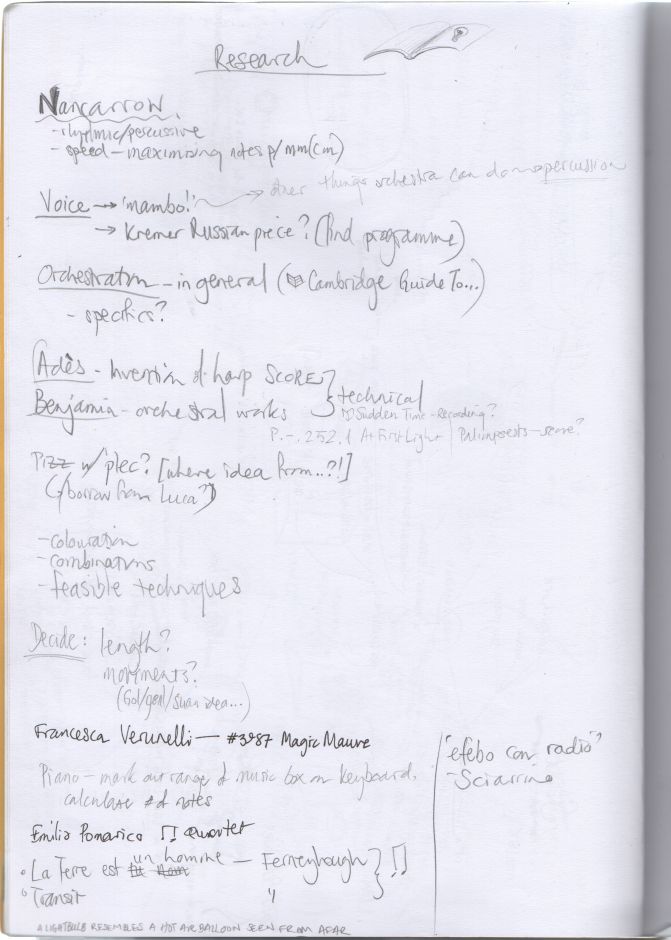 Research
Nancarrow.
- rhythmic/percussive
- speed - maximising notes p/mm(cm)
Voice → 'mambo!' → other things orchestra can do → percussion
→ Kremer Russian piece? (find programme)
Orchestration - in general (Cambridge Guide To...)
- specifics?
Adès - Invention of harp SCORE } technical
Benjamin - orchestral works
Sudden Time - Recording?
P. 252.1 At First Light | Palimpsests - score?
Pizz w/ plec? [where idea from..?!]
(borrow from Luca?)
- colouration
- combinations
- feasible techniques
Decide: length?
movements?
idea...)
Francesca Verunelli - #3987 Magic Mauve
Piano - mark out range of music box on keyboard,
calculate # of notes
Emilio Pomarico Quartet
La Terre est un homme - Ferneyhough
Transit "
"efebo con radio"
- Sciarrino
A LIGHTBULB RESEMBLES A HOT AIR BALLOON SEEN FROM AFAR